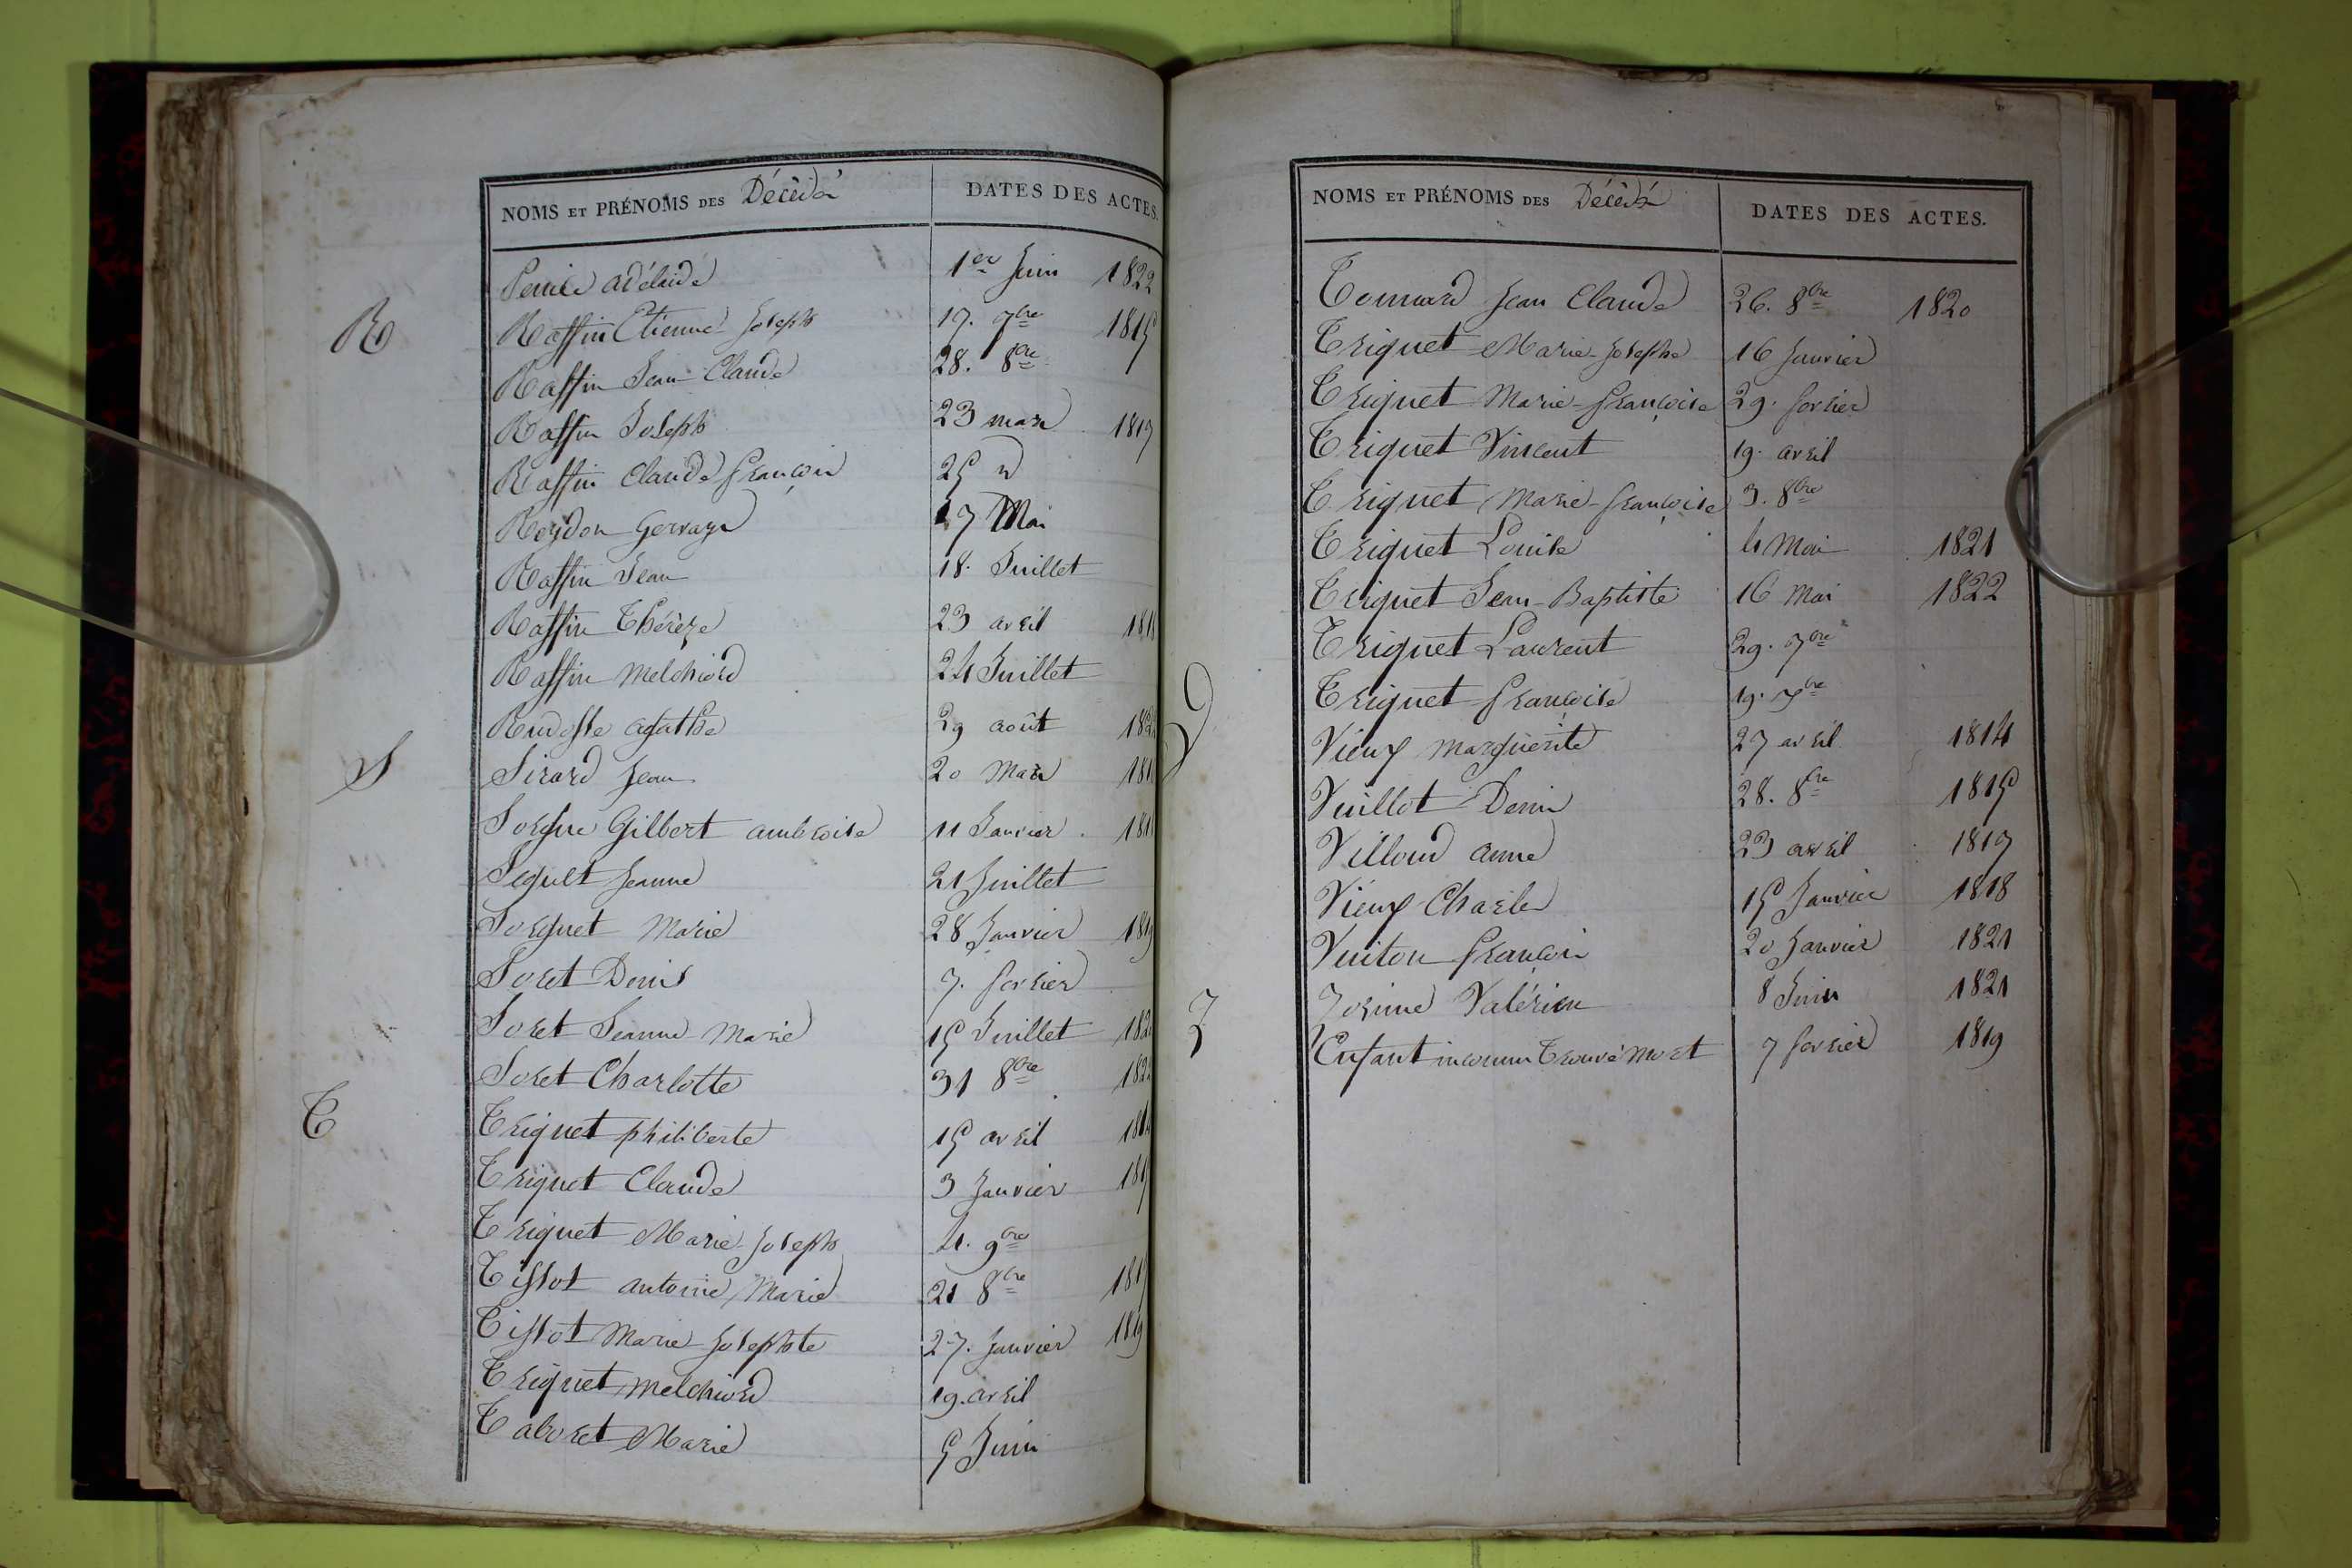 NOMS ET PRÉNOMS DES Décédés DATES DES ACTES.
Pernice adélaide 1er Juin 1822
R Raffin Etienne Joseph 17. 7bre 1815
Raffin Jean Claude 28. 8bre
Raffin Joseph 23 mars 1817
Raffin Claude françois 25 d
Reydon Gervays 17 Mai
Raffin Jean 18. Juillet
Raffin Thérèze 23 avril
Raffin Melchiord 24 Juillet
agathe 29 août
S Sirard Jean 20 Mars
Sorgue Gilbert ambroise 11 Janvier
Seguet Jeanne 21 Juillet
Sorguet Marie 28 Janvier
Soret Denis 7. fevrier
Soret Jeanne Marie 15 Juillet
Soret Charlotte 31 8bre
T Triquet philiberte 15 avril
Triquet Claude 3 Janvier
Triquet Marie Joseph 4. 9bre
Tissot antoine Marie 21 8bre
Tissot Marie Josephte 27. Janvier 1819
Triquet Melchiord 19. avril
Taboret Marie 5 Juin
NOMS ET PRÉNOMS DES Décédés DATES DES ACTES.
Tonnard Jean Claude 26. 8bre 1820
Triquet Marie-Josephe 16 Janvier
Triquet Marie-françoise 29. fevrier
Triquet Vincent 19. avril
Triquet Marie-françoise 3. 8bre
Triquet Louise 4 Mai 1821
Triquet Jean-Baptiste 16 Mai 1822
Triquet Laurent 29. 7bre
Triquet françoise 19. 7bre
V Vieux Marguerite 27 avril 1814
Vuillot Denis 28. 8bre 1815
Villoud anne 23 avril 1817
Vieux Charles 15 Janvier 1818
Vuiton françois 20 Janvier 1821
Z Zozime Valérien 8 Juin 1821
Enfant inconnu trouvé mort 7 fevrier 1819